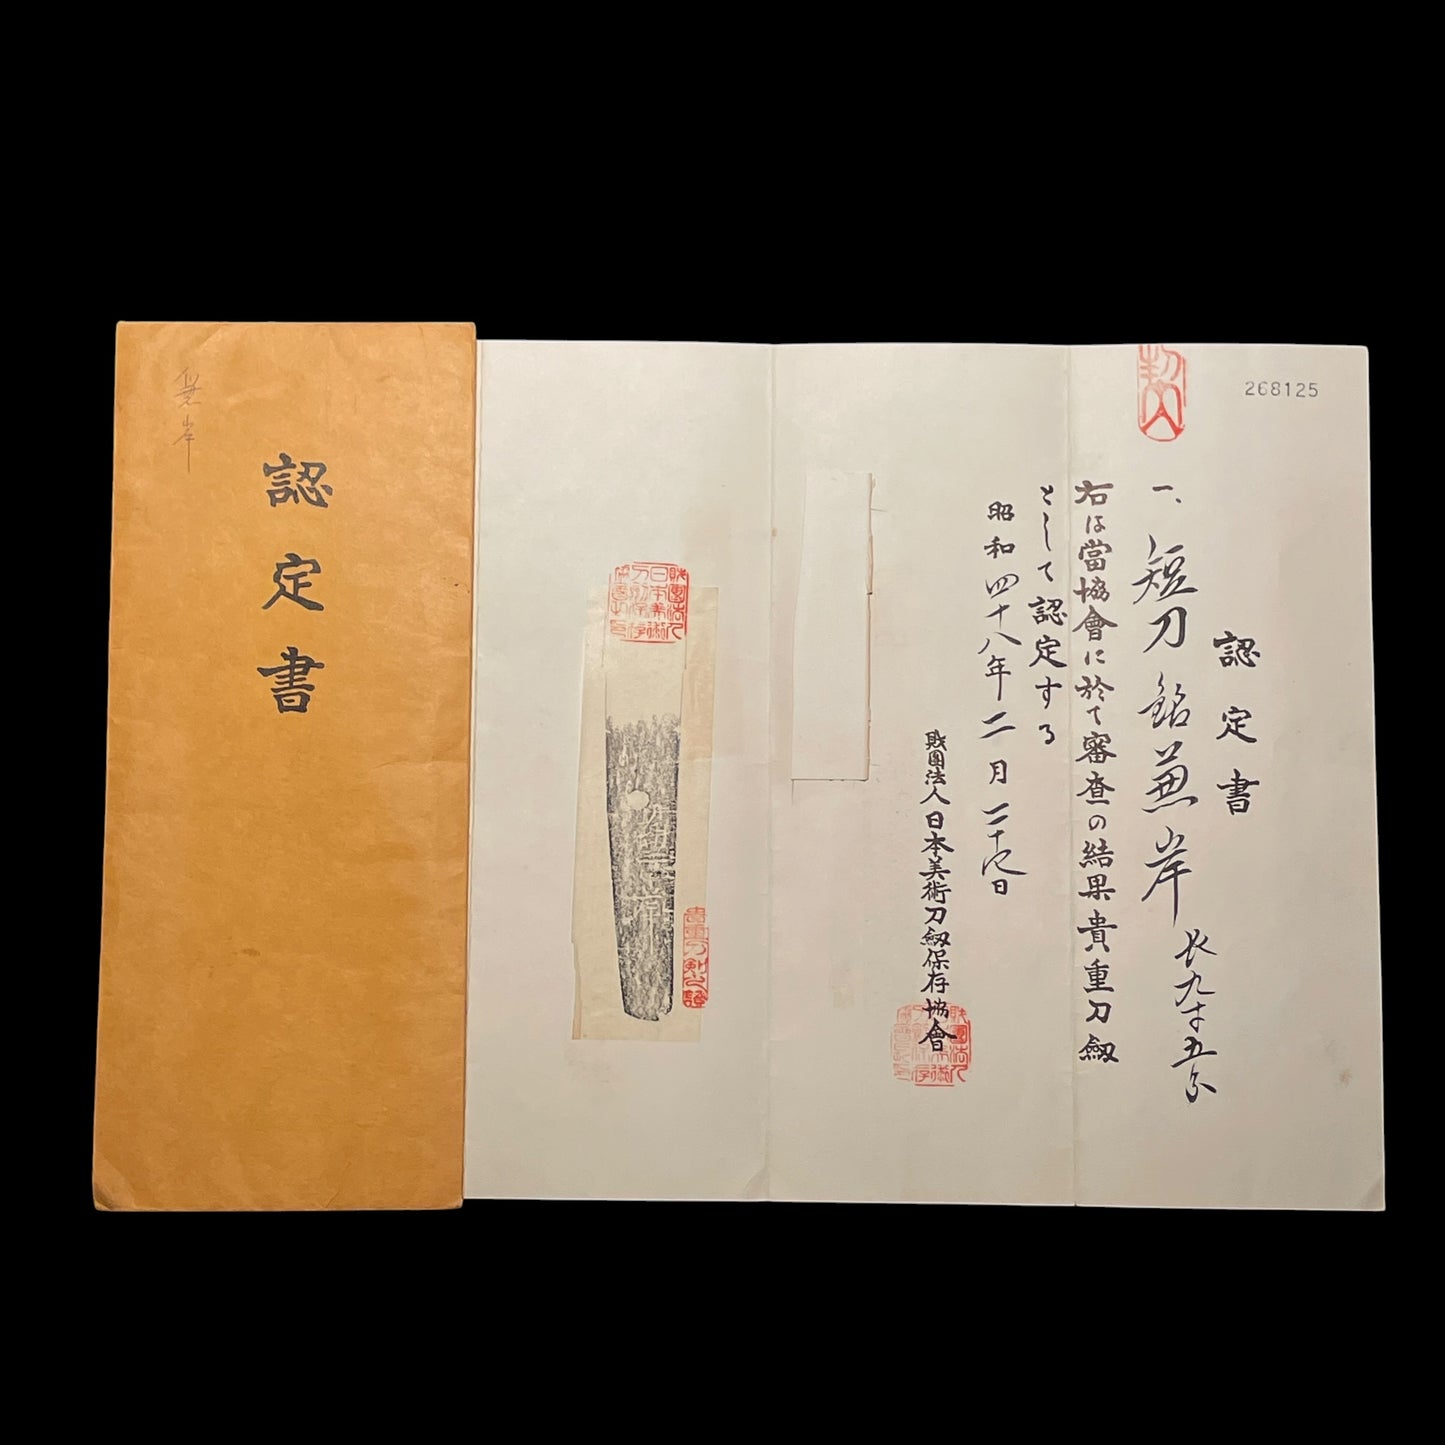 兼岸
認定書
268125
認定書
一、短刀 銘 兼岸 長九寸五分
右は當協會に於て審査の結果貴重刀劔
として認定する
昭和四十八年二月二十 日
財團法人日本美術刀劔保存協會